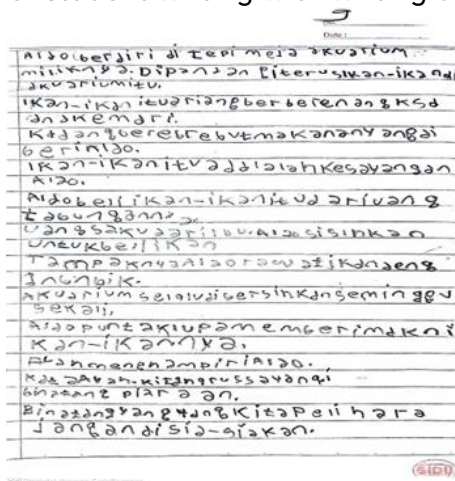 J
Date :
Aldo berdiri di tepi meja akuarium
miliknya. Dipandan
akuariumitu.
Ikan-ikan itu riang berberenang kesa
anakemari.
Kadangberebrebutmakananyangdi
berinldo.
Ikan-ikanitu adalalahkesayangan
Aldo.
Aldobeliikan-ikanitudariuang
tabungannya.
uangsakuariibu.Aldosisihkan
untukbeliikan
TampaknyaAldorawatikandeng
Akuariumselaludibersihkanseminggu
sekali,
Aldopuntaklupamemberimakni
kan-ikannya.
menehampiriAldo.
binatang piaraan.
Binatangyangyangkitapelihara
jangandisia-siakan.
SIDU